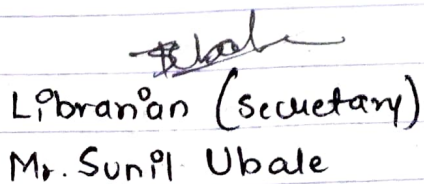 Librarian (Secretary)
Mr. Sunil Ubale